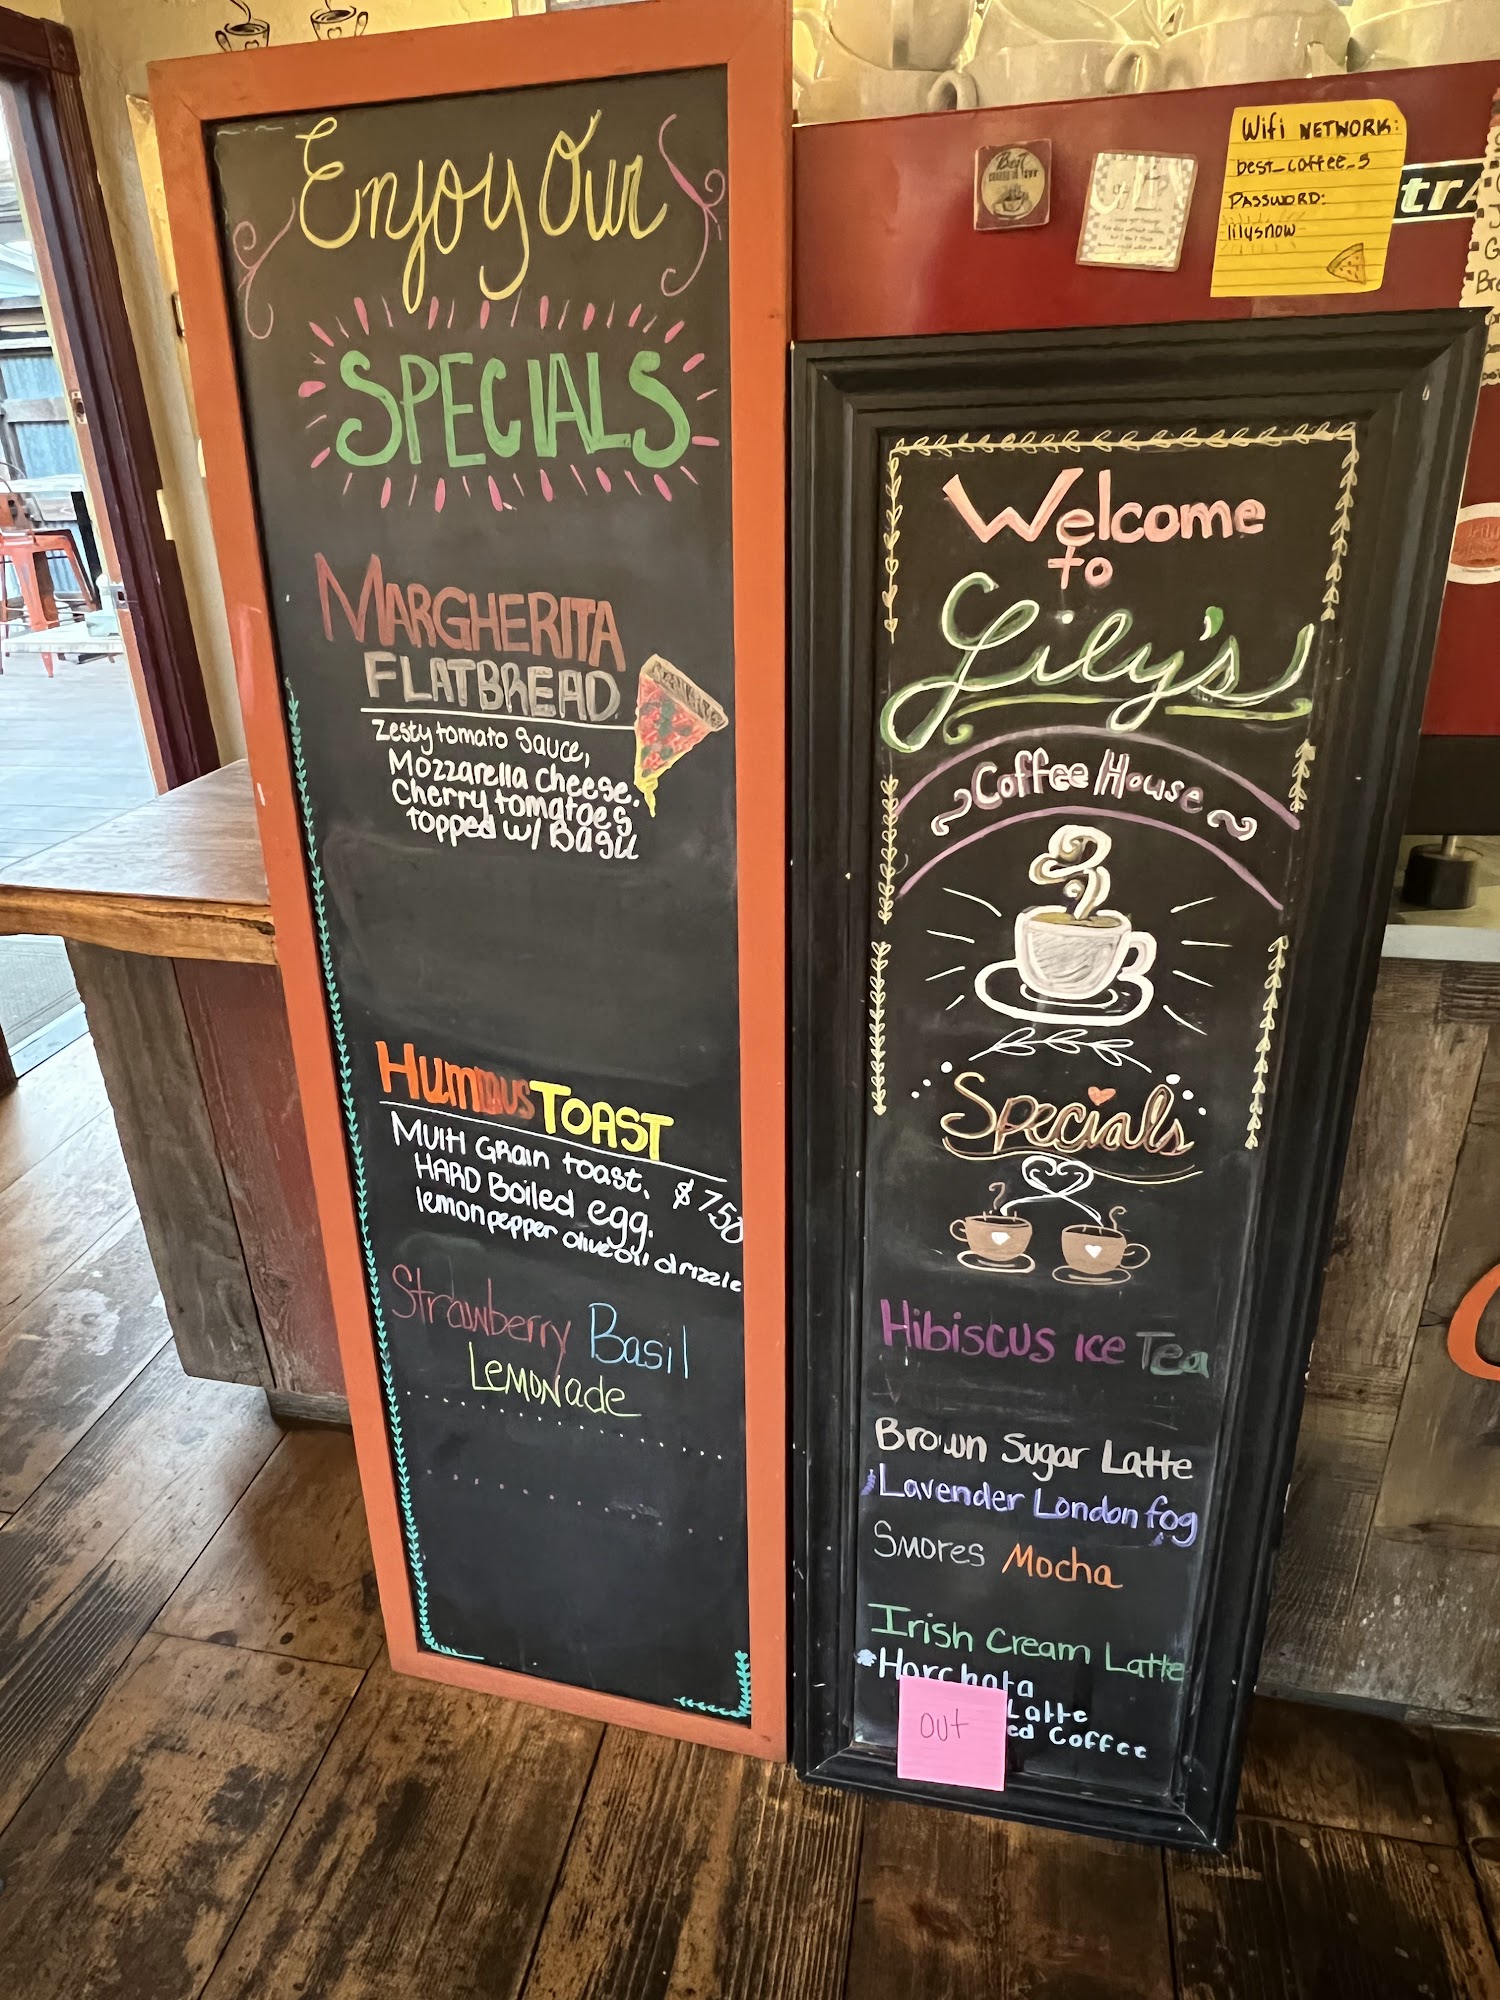 Enjoy Our
SPECIALS
MARGHERITA
FLATBREAD
Zesty tomato sauce,
Mozzarella cheese.
Cherry tomatoes
topped w/ Basil
HUMMUS TOAST
Multi Grain toast. $7.50
HARD Boiled egg.
lemon pepper olive oil drizzle
Strawberry Basil
Lemonade
Wifi NETWORK:
best_coffee_5
PASSWORD:
lilysnow
Welcome
to
Lily's
Coffee House
Specials
Hibiscus ice Tea
Brown Sugar Latte
Lavender London fog
Smores Mocha
Irish Cream Latte
*Horchata
Latte
ed Coffee
out